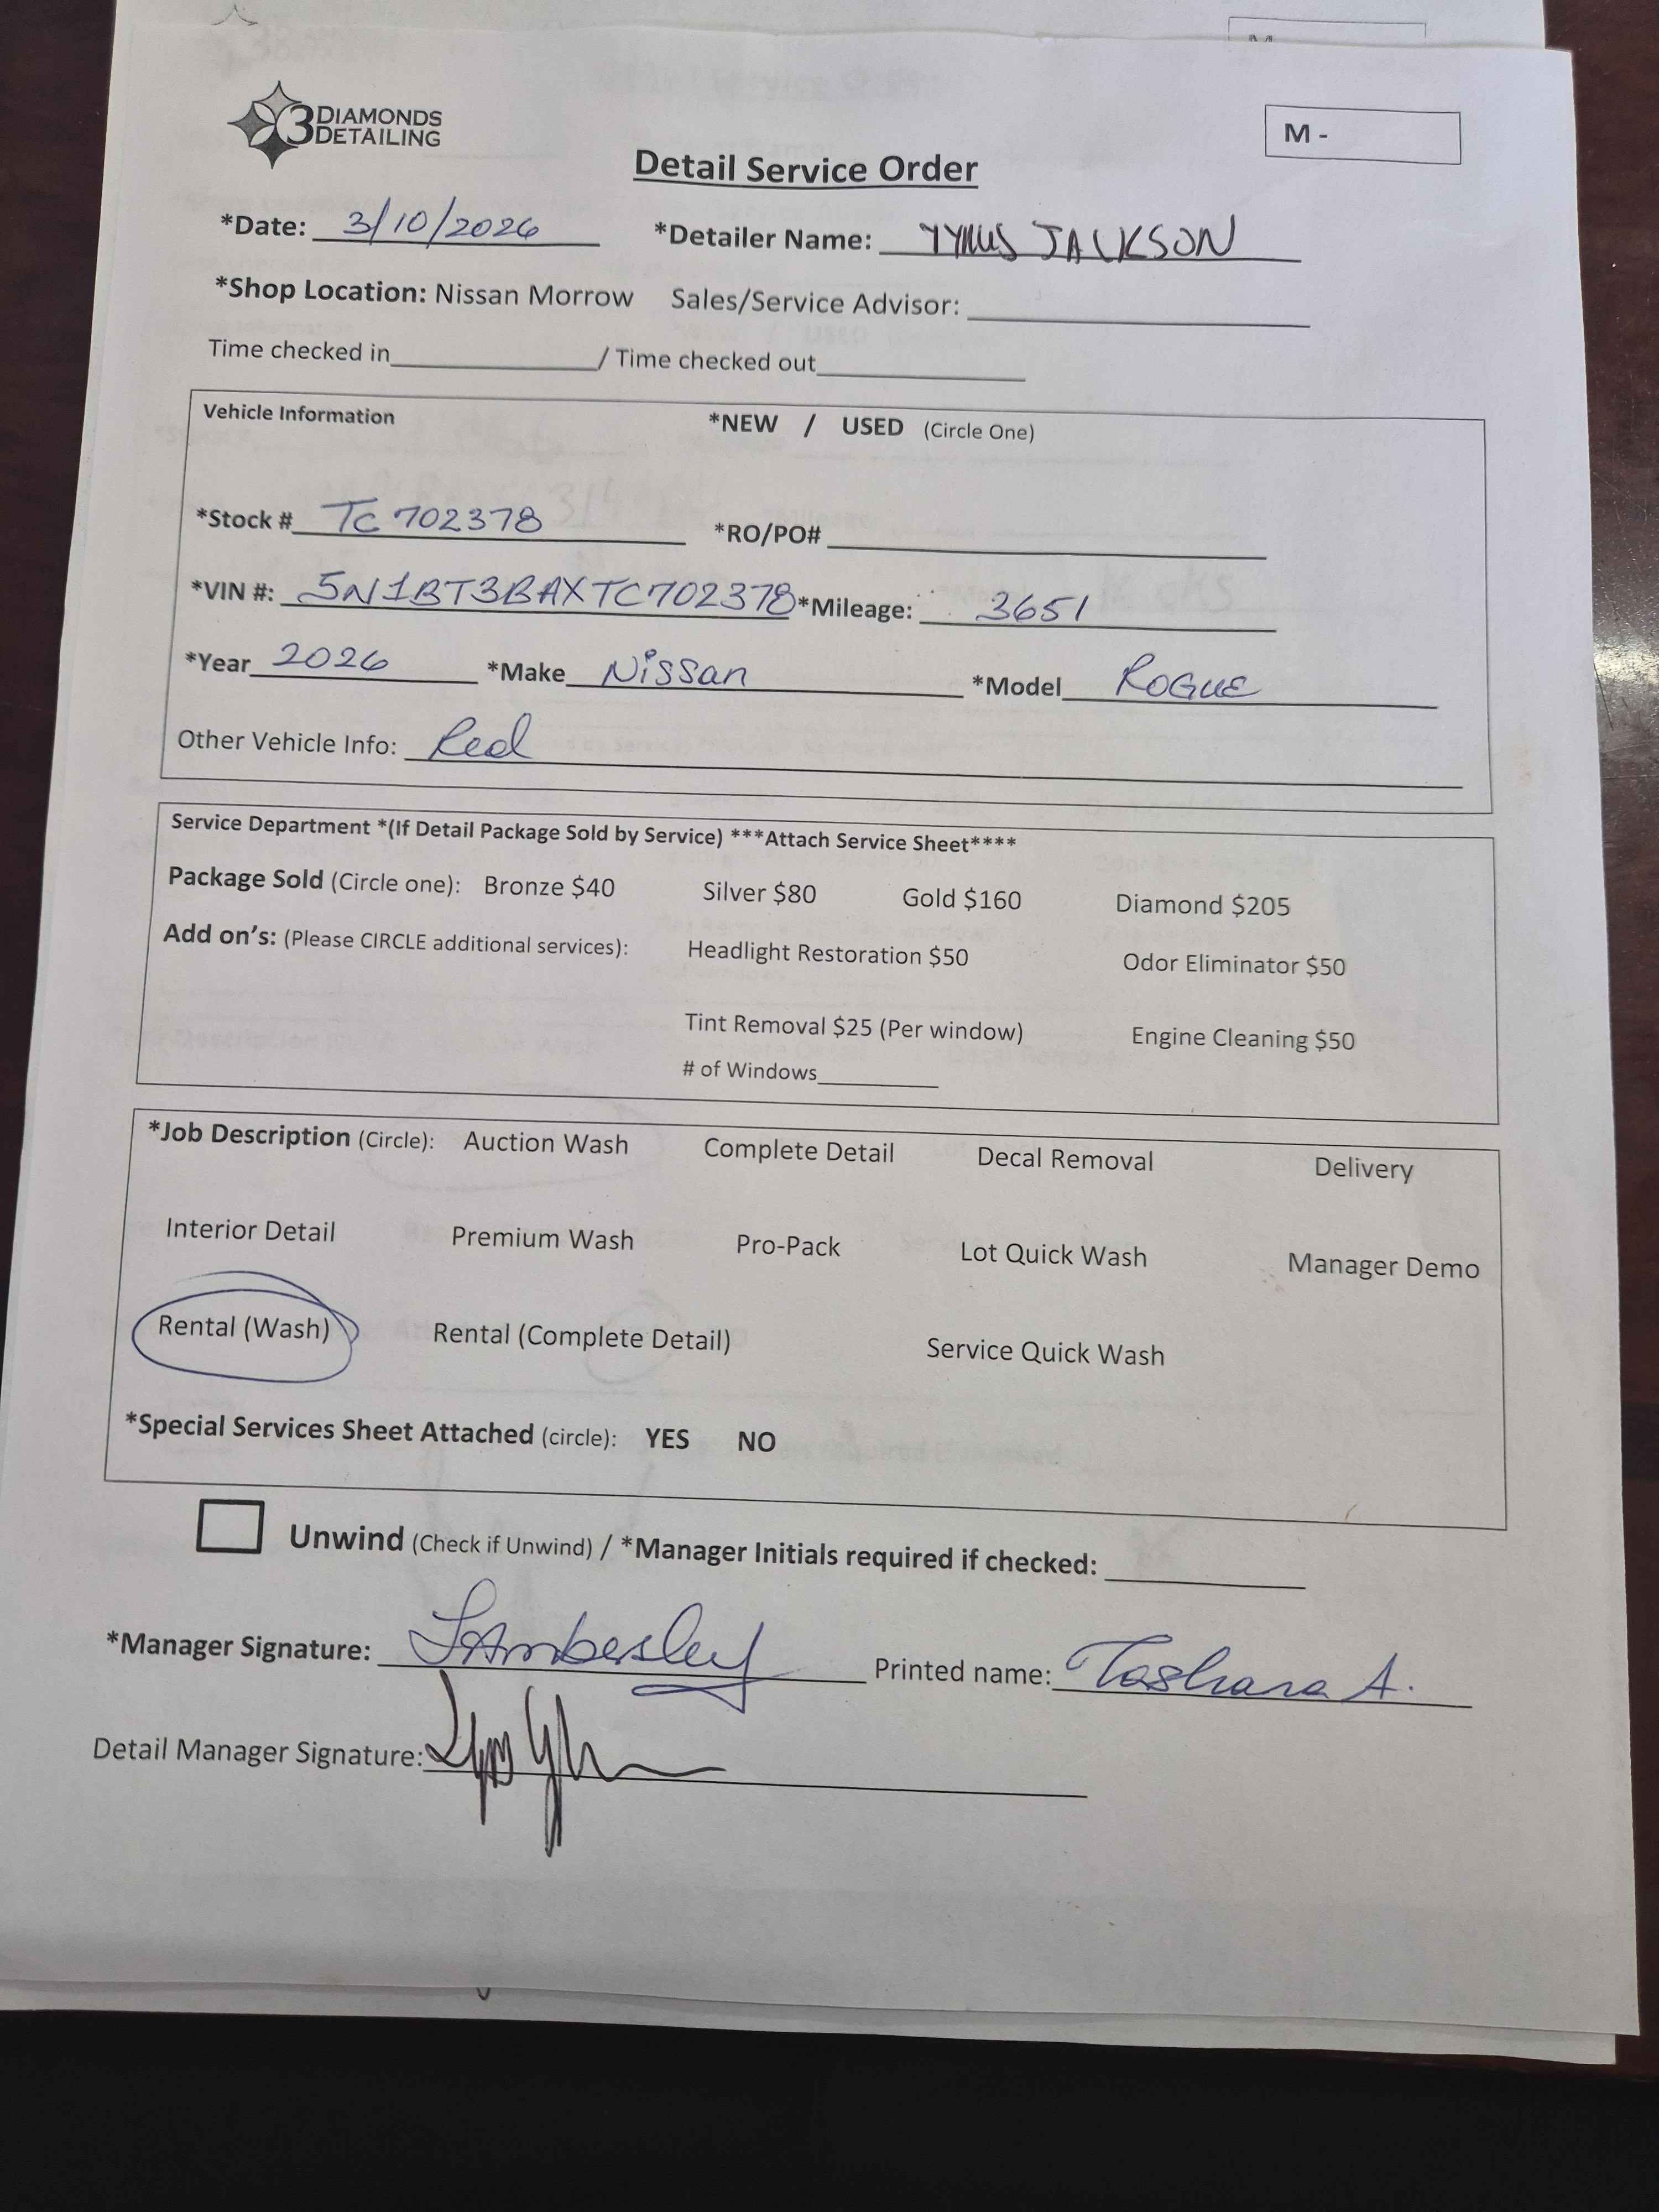 3 DIAMONDS
DETAILING
M -
Detail Service Order
*Date: 3/10/2026 *Detailer Name: TYRUS JACKSON
*Shop Location: Nissan Morrow Sales/Service Advisor:
Time checked in / Time checked out
Vehicle Information *NEW / USED (Circle One)
*Stock # TC702378 *RO/PO#
*VIN #: 5N1BT3BAXTC702378 *Mileage: 3651
*Year 2026 *Make Nissan *Model ROGUE
Other Vehicle Info: Red
Service Department *(If Detail Package Sold by Service) ***Attach Service Sheet****
Package Sold (Circle one): Bronze $40 Silver $80 Gold $160 Diamond $205
Add on's: (Please CIRCLE additional services): Headlight Restoration $50 Odor Eliminator $50
Tint Removal $25 (Per window) Engine Cleaning $50
# of Windows
*Job Description (Circle): Auction Wash Complete Detail Decal Removal Delivery
Interior Detail Premium Wash Pro-Pack Lot Quick Wash Manager Demo
Rental (Wash) Rental (Complete Detail) Service Quick Wash
*Special Services Sheet Attached (circle): YES NO
Unwind (Check if Unwind) / *Manager Initials required if checked:
*Manager Signature: Printed name: Tashana A.
Detail Manager Signature: